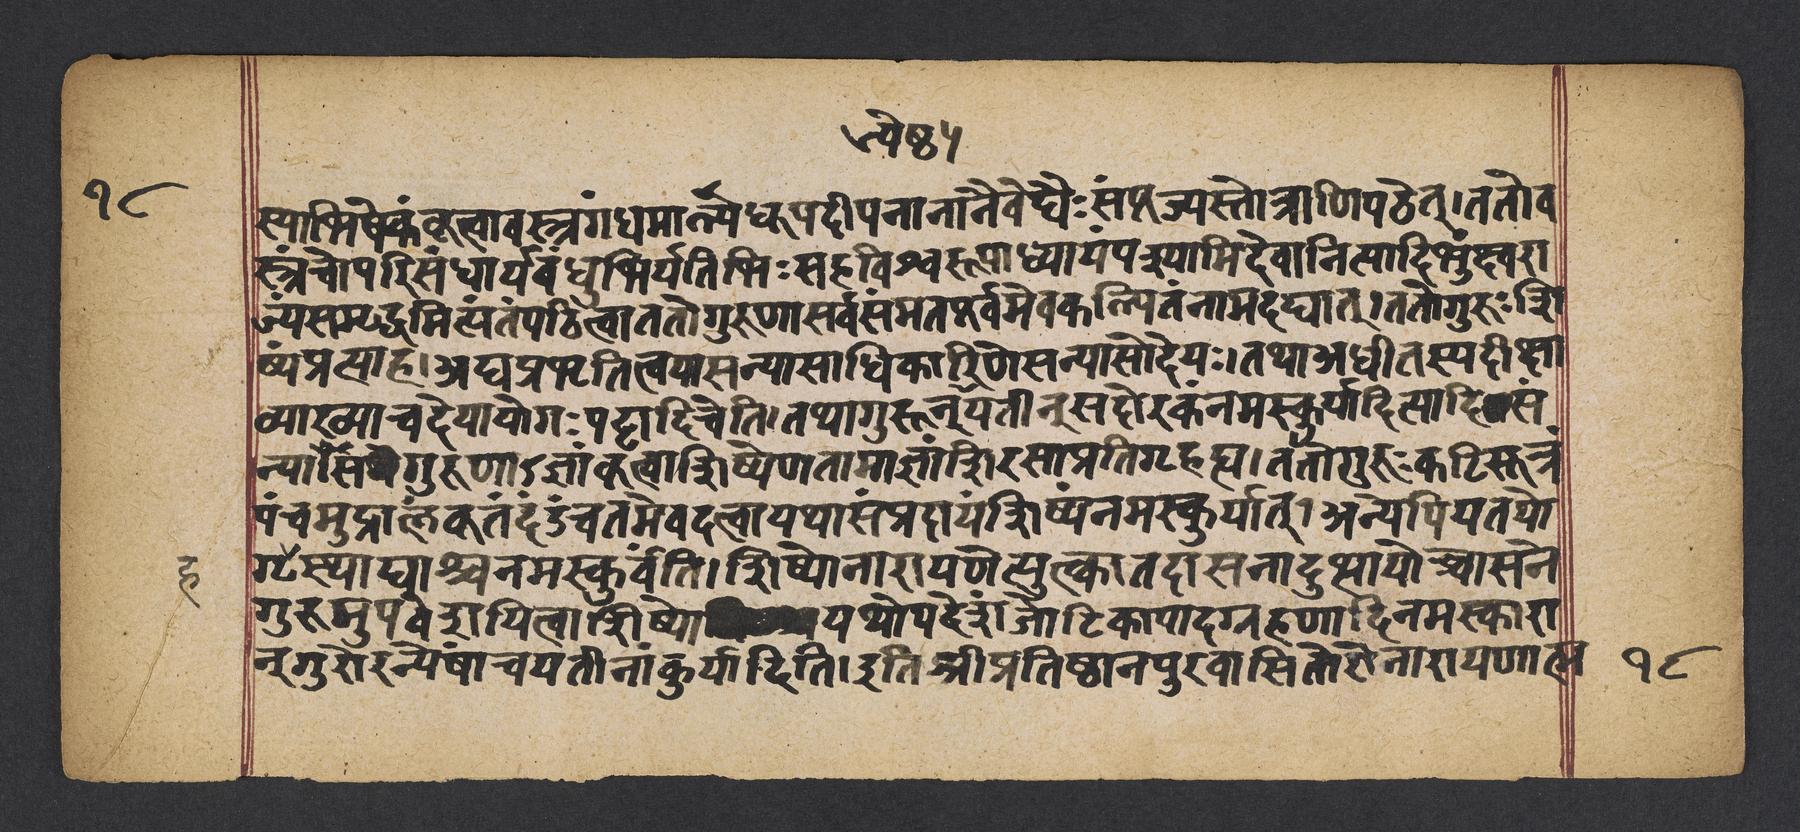 ज्येष्ठ ५
१८
स्याभिषेकं कृत्वा वस्त्रगंधमाल्यैर्धूपदीपनानानैवेद्यैः संपूज्य स्तोत्राणि पठेत् । ततो व
स्त्रं चोपरि संधार्य बंधुभिर्यतिभिः सह विश्वरूपाध्यायं पश्यामि देवानित्यादि भुंक्ष्व रा
ज्यं समृद्धमित्यंतं पठित्वा ततो गुरूणा सर्वसंमतपूर्वमेव कल्पितं नाम दद्यात् । ततो गुरूः शि
ष्यं प्रत्याह । अद्य प्रभृति त्वया सन्यासाधिकारिणे सन्यासो देयः । तथा अधीतस्य दीक्षा
व्याख्या च देया योगः पट्टादि चेति । तथा गुरून् यतीन् सदोरकं नमस्कुर्यादित्यादि सं
न्यासि गुरूणाऽज्ञां कृत्वा शिष्येण तामाज्ञां शिरसा प्रतिगृहह्य । ततो गुरूः कटिसूत्रं
पंचमुद्रालंकृतं दंडं च तमेव दत्वा यथासंप्रदायं शिष्यं नमस्कुर्यात् । अन्येपि यतयो
गृहस्थाद्याश्च नमस्कुर्वंति । शिष्यो नारायणेत्युत्क्वा तदासनादुत्थायोच्चासने
ह
गुरूमुपवेशयित्वा शिष्यो यथोपदेशं जोटिकापादग्रहणादिनमस्कारा
न् गुरोरन्येषां च यतीनां कुर्यादिति । इति श्रीप्रतिष्ठानपुरवासि तोरो नारायणात्म
१८